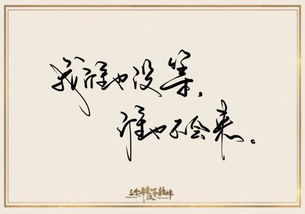 我谁也没等，
谁也不会来。